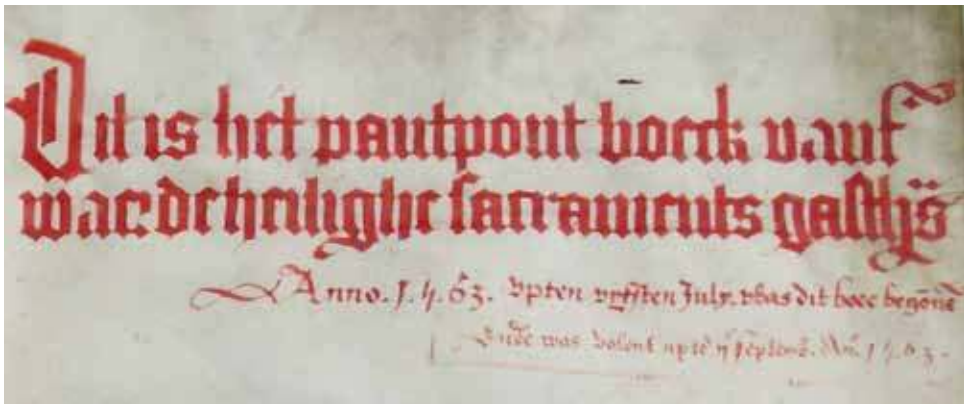 Dit is het pautpont boeck van sᵗ
waerde heilighe sacraments gasthŭs
Anno. 1.4.63. upten vyfsten July. was dit boec begōnē
Ende was volent upte September. Aº. 1463.